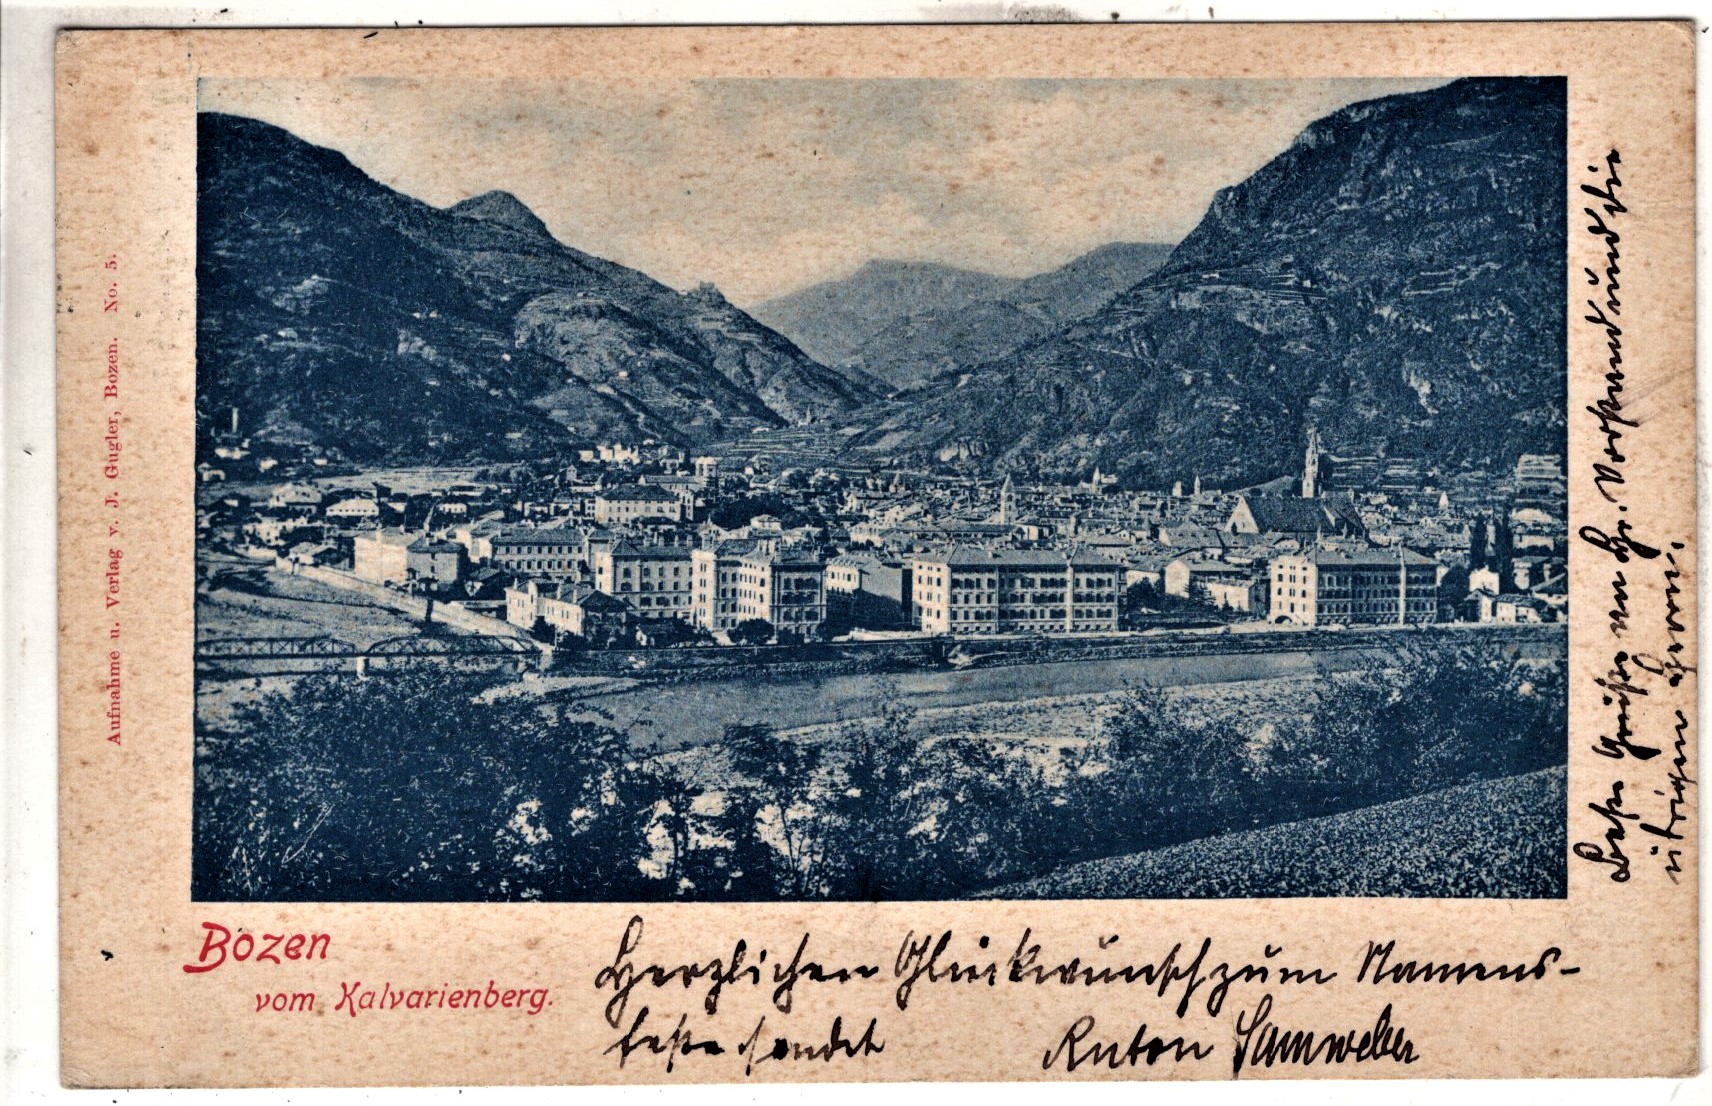 Aufnahme u. Verlag v. J. Gugler, Bozen. No. 5.
Bozen
vom Kalvarienberg.
Herzlichen Glückwunsch zum Namens-
feste sendet Anton Samweber
Beste Grüße an Hr. Vorstand und die
übrigen Herrn.